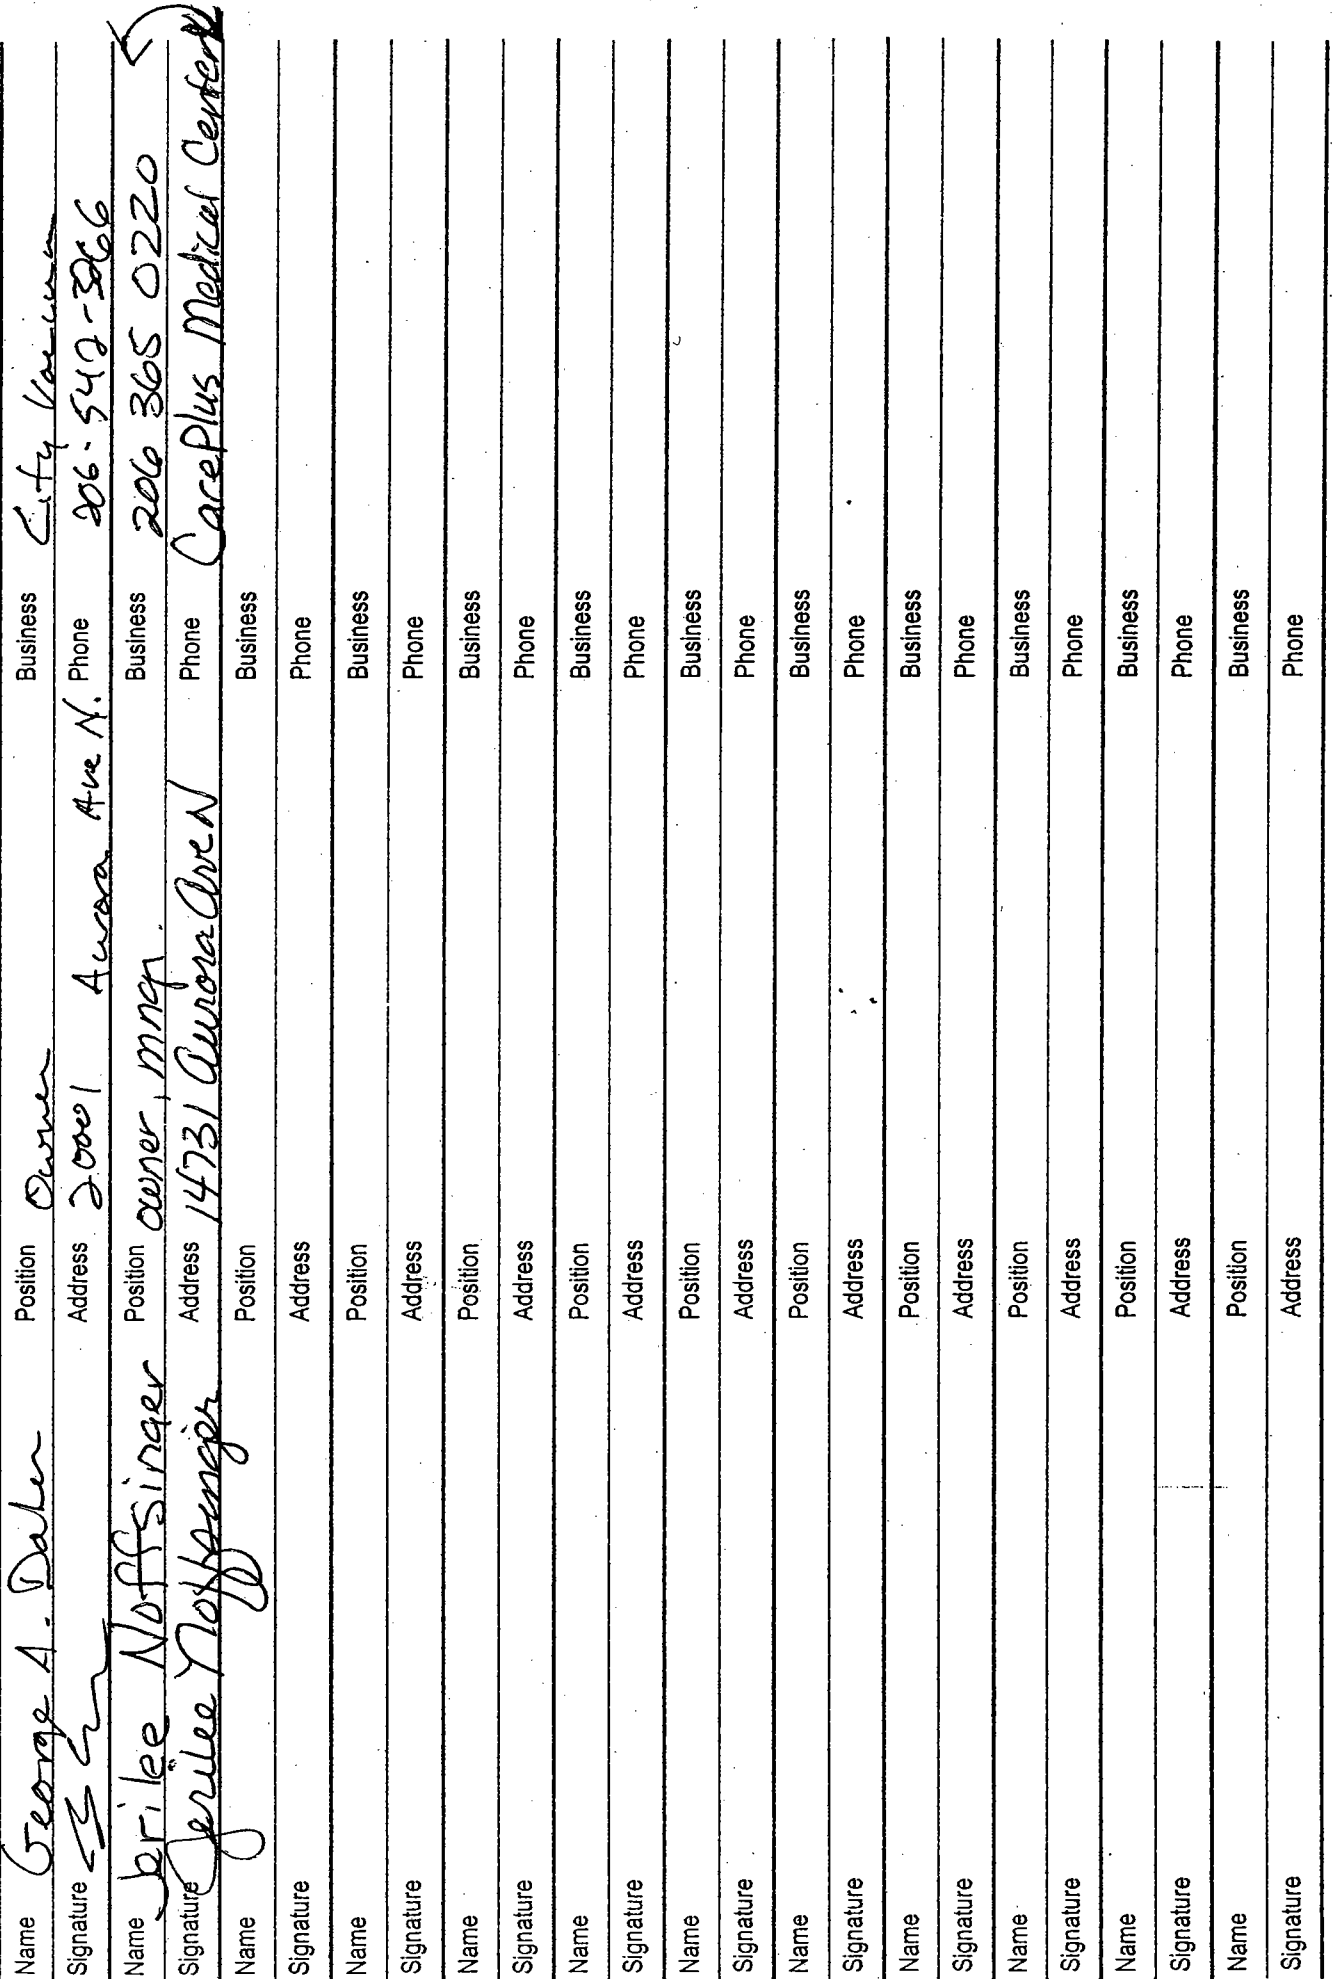 Name George A. Daher Position Owner Business City Vacuum
Signature Address 20001 Aurora Ave N. Phone 206-542-3266
Name Jerilee Noffsinger Position owner, mngr. Business 206 365 0220
Signature Jerilee Noffsinger Address 14731 Aurora Ave N Phone CarePlus Medical Center
Name Position Business
Signature Address Phone
Name Position Business
Signature Address Phone
Name Position Business
Signature Address Phone
Name Position Business
Signature Address Phone
Name Position Business
Signature Address Phone
Name Position Business
Signature Address Phone
Name Position Business
Signature Address Phone
Name Position Business
Signature Address Phone
Name Position Business
Signature Address Phone
Name Position Business
Signature Address Phone